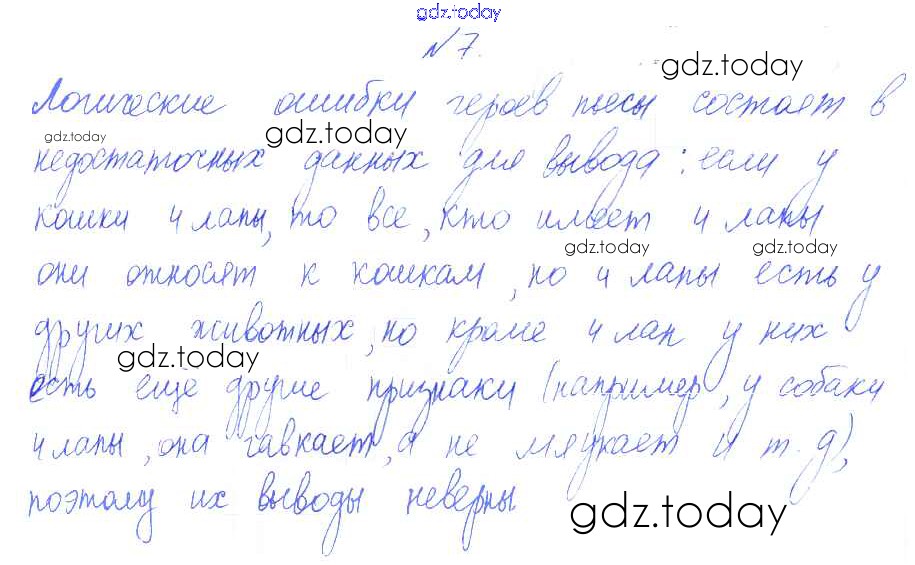 gdz.today
№7.
gdz.today
Логические ошибки героев пьесы состоят в
gdz.today gdz.today
недостаточных данных для вывода: если у
кошки 4 лапы, то все, кто имеет 4 лапы
gdz.today gdz.today
они относят к кошкам, но 4 лапы есть у
других животных, но кроме 4 лап у них
gdz.today
есть ещё другие признаки (например, у собаки
4 лапы, она гавкает, а не мяукает и т.д),
поэтому их выводы неверны
gdz.today